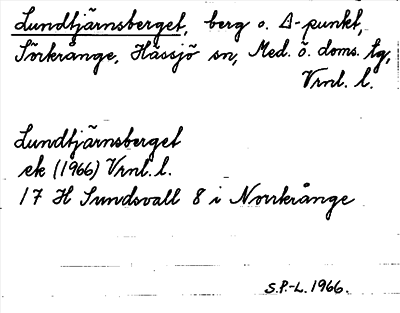 Lundtjärnsberget, berg o. Δ-punkt,
Sörkrånge, Hässjö sn, Med. ö. doms. tg,
Vrnl. l.
Lundtjärnsberget
ek (1966) Vrnl. l.
17 H Sundsvall 8 i Norrkrånge
S.P.-L. 1966.